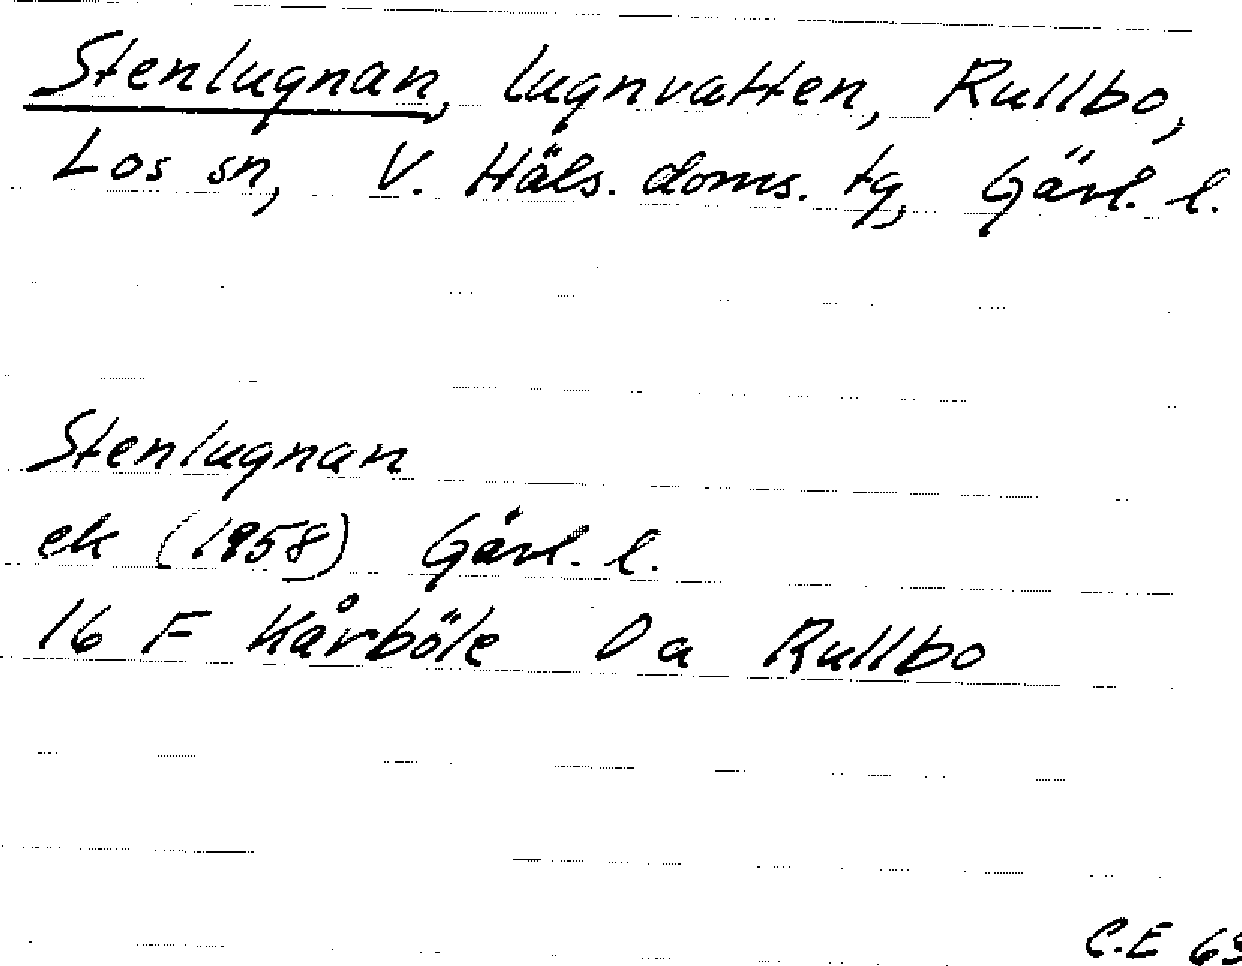 Stenlugnan, lugnvatten, Rullbo,
Los sn, V. Häls. doms. tg, Gävl. l.
Stenlugnan
ek (1958) Gävl. l.
16 F Kårböle 0 a Rullbo
C.E